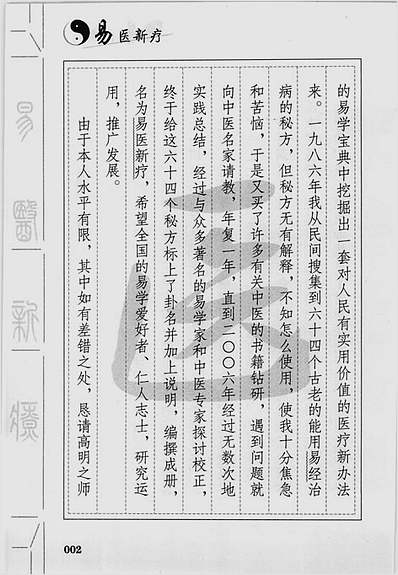 易医新疗
的易学宝典中挖掘出一套对人民有实用价值的医疗新办法
来。一九八六年我从民间搜集到六十四个古老的能用易经治
病的秘方，但秘方无有解释，不知怎么使用，使我十分焦急
和苦恼，于是又买了许多有关中医的书籍钻研，遇到问题就
向中医名家请教，年复一年，直到二〇〇六年经过无数次地
实践总结，经过与众多著名的易学家和中医专家探讨校正，
终于给这六十四个秘方标上了卦名并加上说明，编撰成册，
名为易医新疗，希望全国的易学爱好者、仁人志士，研究运
用，推广发展。
由于本人水平有限，其中如有差错之处，恳请高明之师
易醫新療
002